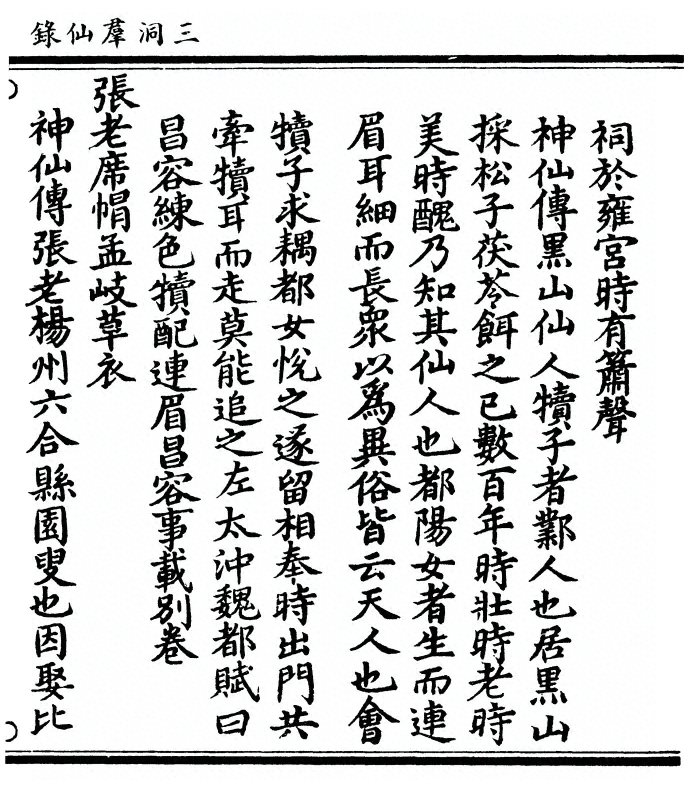 三洞羣仙錄
祠於雍宮時有簫聲
神仙傳黑山仙人犢子者鄴人也居黑山
採松子茯苓餌之已數百年時壯時老時
美時醜乃知其仙人也都陽女者生而連
眉耳細而長衆以爲異俗皆云天人也會
犢子求耦都女悅之遂留相奉時出門共
牽犢耳而走莫能追之左太沖魏都賦曰
昌容練色犢配連眉昌容事載別卷
張老席帽孟岐草衣
神仙傳張老楊州六合縣園叟也因娶比